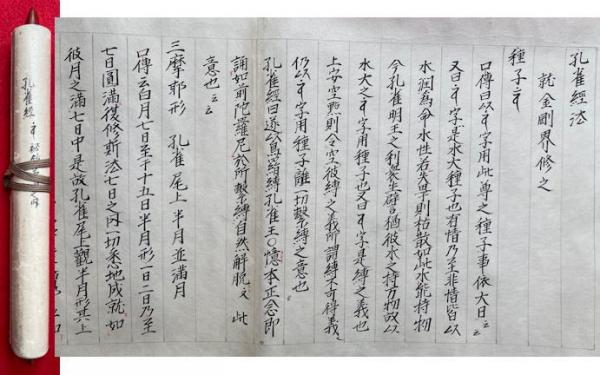 孔雀經法
就金剛界修之
種子
口傳曰以字用此尊之種子事依大日云云
又曰字是水大種子也有情乃至非情皆以
水潤為命水性若失畢則枯散如此水能持物
今孔雀明王之利衆生譬猶彼水之持万物故以
水大之字用種子也又曰字是縛之義也
上安空點則令空彼縛之義所謂縛不可得義
仍以字用種子離一切繫縛之意也
孔雀經曰遂以鳥羂縛孔雀王○憶本正念即
誦如前陀羅尼於所繫縛自然解脫文 此
意也云云
三摩耶形 孔雀尾上半月並滿月
口傳云白月七日至十五日半月形一日二日乃至
七日圓滿復修斯法七日之內一切悉地成就如
彼月之滿七日中是故孔雀尾上觀半月形其上
孔雀經